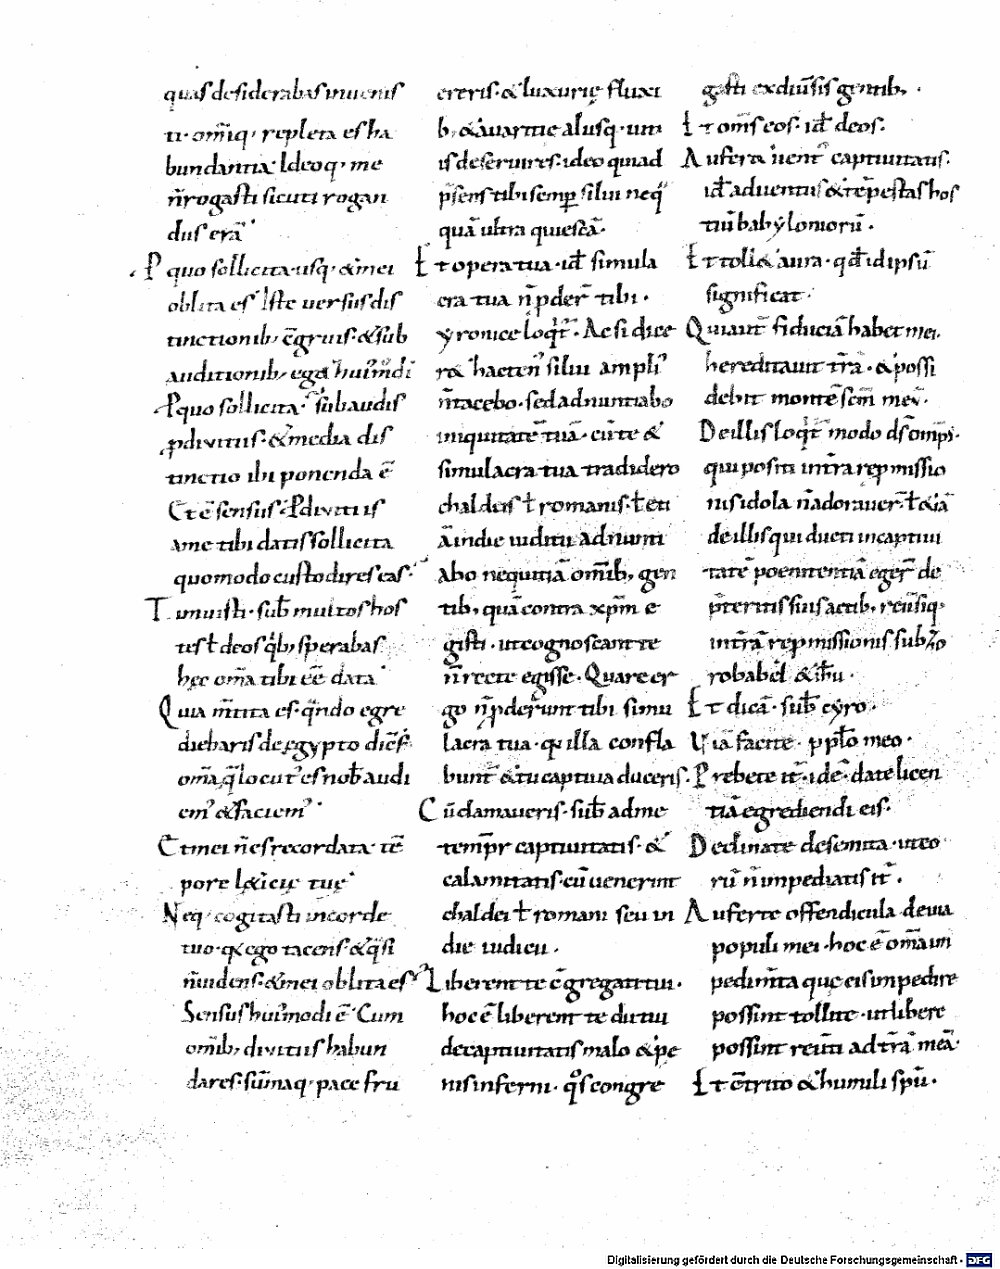 quas desiderabas invenis
ti · om̄iq; repleta es ha
bundantia · Ideoq; me
n̄ rogasti sicuti rogan
dus erā ·
P quo sollicita usq; & mei
oblita es · Iste versus dis
tinctionib; c̄gruis · & sub
auditionib; eg&
P quo sollicita · subaudis
p divitiis · & media dis
tinctio ibi ponenda ē
Et ē sensus · P divitiis
a me tibi datis sollicita
quomodo custodires eas ·
Timuisti · sub̄ multos hos
tes ł deos q̇b; sperabas
hęc om̄a tibi eē data
Quia m̄tita es · q̄ndo egre
diebaris de ęgypto
om̄a q̄ locut' es nob̄ audi
em' & faciem' ·
Et mei n̄ es recordata · tē
pore l&icię tuę
Neq; cogitasti in corde
tuo · q̇ ego tacens · & q̄si
n̄ videns · & mei oblita es
Sensus huī modi ē · Cum
omīb; divitiis habun
dares · sūmaq; pace fru
ereris · & luxurię fluxi
b; & avaritie aliisq; viti
is deservires · ideo quia d
p̄sens tibi semp silui neq;
quā ultra quiescā ·
Et opera tua · id̄ simula
cra tua n̄ pder̄ tibi ·
Yronice loq̄t · Ac si dice
r& hacten' silui ampli'
n̄ tacebo · sed adnuntiabo
iniquitatē tuā · cū te &
simulacra tua tradidero
chaldeis ł romanis · ł eti
ā in die iudicii adnunti
abo nequitiā om̄ib; gen
tib; quā contra xp̄m e
gisti · ut cognoscant te
n̄ recte egisse · Quare er
go n̄ pderunt tibi simu
lacra tua · q̇ illa confla
bunt̄ & tu captiva duceris ·
Cū clamaveris · sub̄ ad me
temp̄r captivitatis · &
calamitatis · cū venerint
chaldei ł romani seu in
die iudicii ·
Liberent te c̄gregati tui ·
hoc ē liberent te dii tui
de captivitatis malo & pe
nis inferni · q̇s congre
gasti ex div̄sis gentib; ·
Et om̄s eos · id̄ deos ·
Aufer& vent' captivitatis ·
id̄ adventus & tēpestas hos
tiū babyloniorū ·
Et toll& aura · qđ id ipsū
significat ·
Qui aut̄ fiduciā hab& mei ·
hereditavit tr̄ā · & possi
debit montē sc̄m meū ·
De illis loq̄t modo ds om̄ps ·
qui positi intra rep missio
nis idola n̄ adoraver̄ ł & iā
de illis qui ducti in captivi
tatē poenitentiā eger̄ de
p̄teritis suis actib; reūsiq;
intrā rep missionis sub zo
robabel & ih̄u ·
Et dicā · sub̄ cyro ·
Viā facite · pplo meo ·
Prebete it̄ · id ē date licen
tiā egrediendi eis ·
Declinate de semita · ut eo
rū n̄ impediatis it̄ ·
Auferte offendicula de via
populi mei · hoc ē om̄a in
pedim̄ta quę eis impedire
possint tollite · ut libere
possint reūti ad tr̄ā meā ·
Et c̄trito & humili sp̄u ·
Digitalisierung gefördert durch die Deutsche Forschungsgemeinschaft - DFG